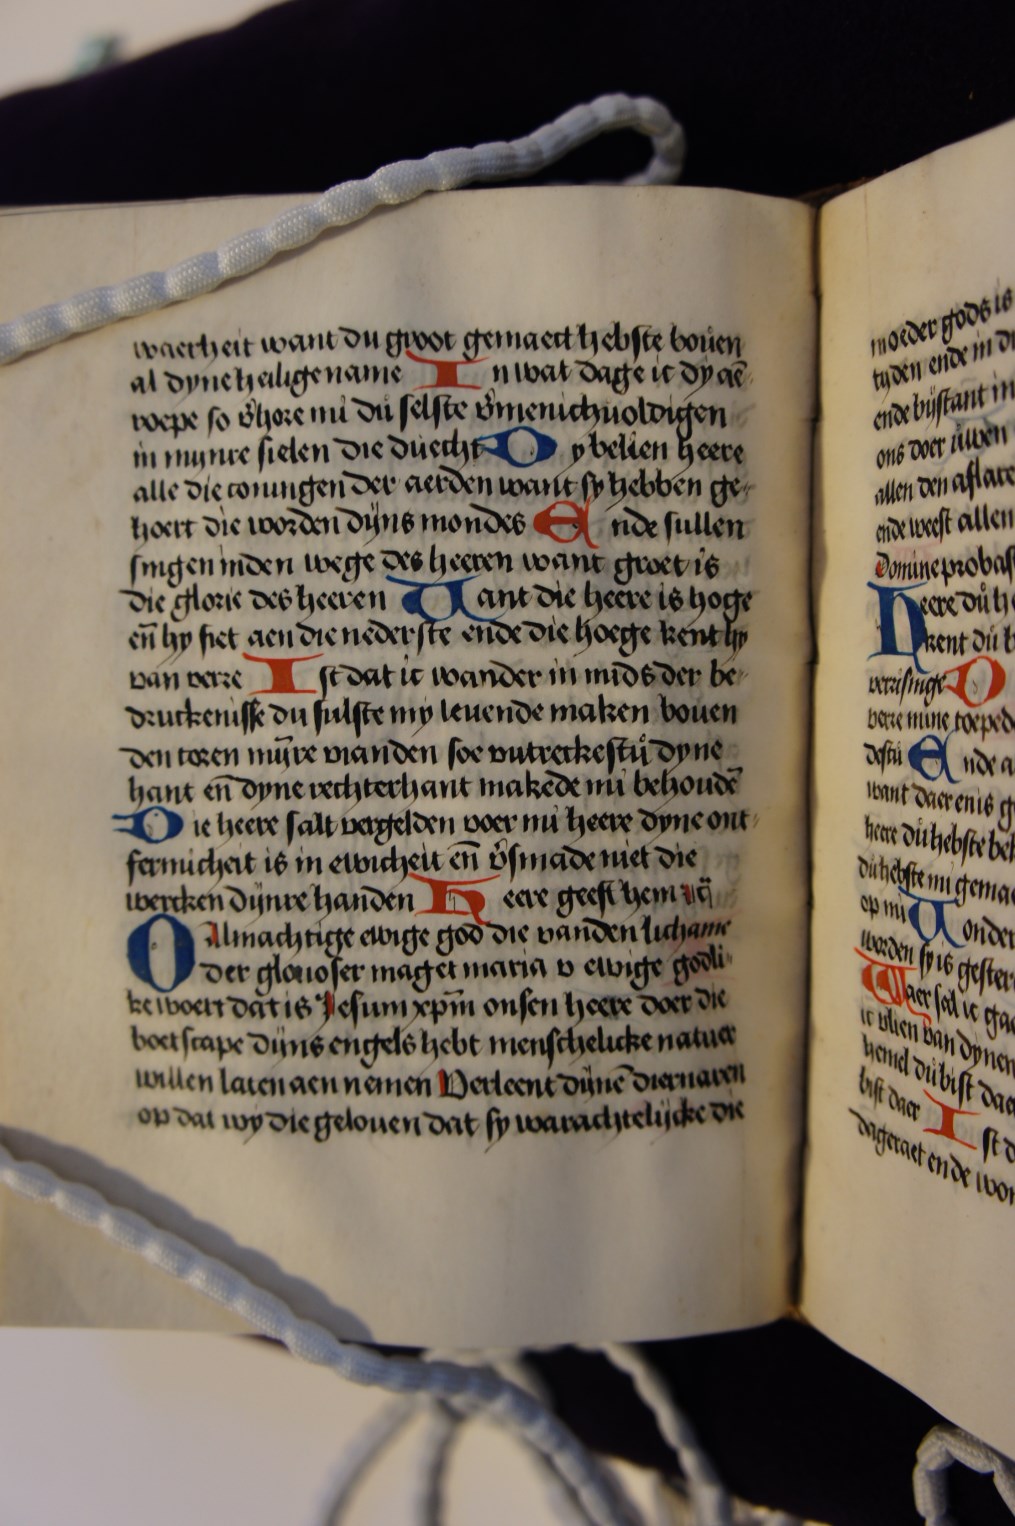 waerheit want du groot gemaect hebste bouen
al dyne heilige name In wat dage ic dy aē
roepe so v̓hore mi du selste v̓menichuoldigen
in mynre sielen die duecht Dy belien heere
alle die coningen der aerden want sy hebben ge-
hoert die worden dijns mondes Ende sullen
singen inden wege des heeren want groet is
die glorie des heeren Want die heere is hoge
en̄ hy siet aen die nederste ende die hoege kent hy
van verre Ist dat ic wander in mids der be-
druckenisse du sulste my leuende maken bouen
den toren mijre vianden soe wtreckestu dyne
hant en̄ dyne rechterhant makede mi behoudē
Die heere salt vergelden voer mi heere dyne ont-
fermicheit is in ewicheit en̄ v̓smade niet die
wercken dijnre handen Heere geeft hem
O Almachtige ewige god die vanden lichame
der glorioser maget maria v ewige godli-
ke woert dat is Jesum xp̄m onsen heere doer die
boetscape dijns engels hebt menschelicke natuer
willen laten aen nemen Verleent dijnē diernaren
op dat wy die gelouen dat sy warachtelijcke die
moeder gods is
tyden ende in
ende bijstant in
ons doer uwen
allen den aflate
ende weest allen
Domine probas
Heere du
kent du
verrisinge
verre mine
destu Ende
want daer en is
heere du hebste
du hebste mi gema
op mi Wonder
worden sy is gester
Waer sal ic gae
ic vlien van dynen
hemel du bist dae
bist daer Ist
dageraet ende